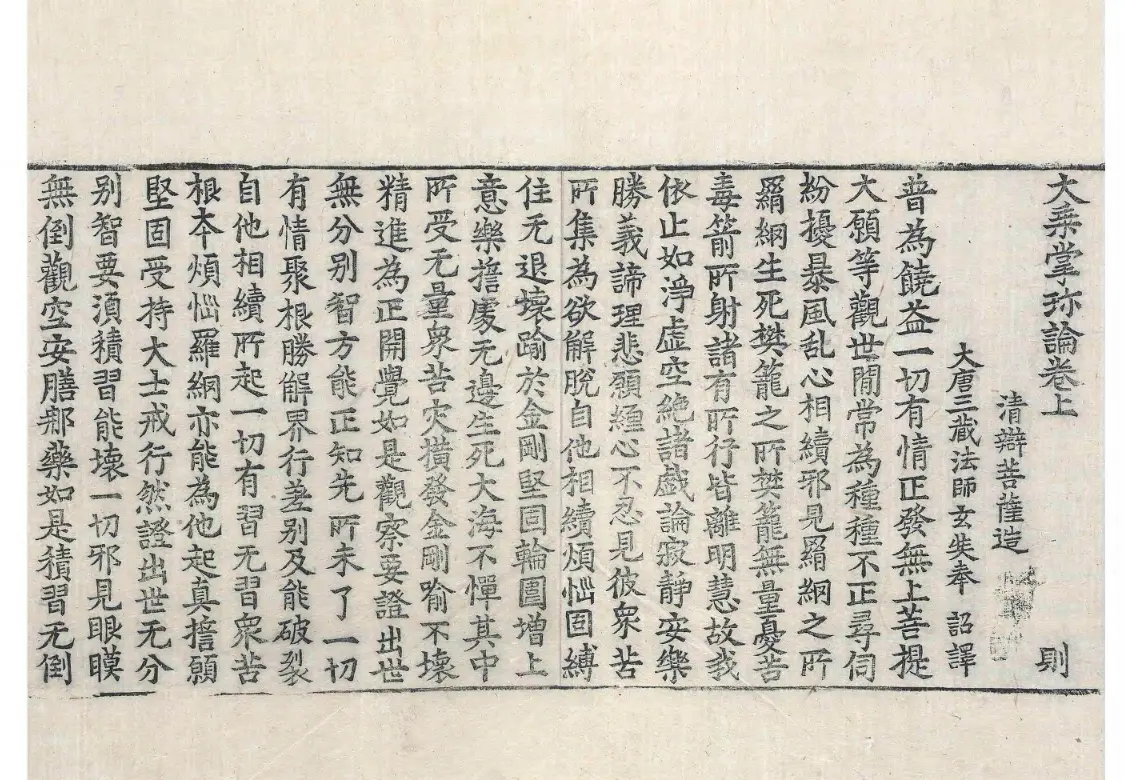 大乗掌珎論卷上 則
清辯菩薩造
大唐三藏法師玄奘奉 詔譯
普為饒益一切有情正發無上菩提
大願等觀世閒常為種種不正尋伺
紛擾暴風乱心相續邪見羂網之所
羂網生死樊籠之所樊籠無量憂苦
毒箭所射諸有所行皆離明慧故我
依止如淨虛空絶諸戲論寂靜安樂
勝義諦理悲願纏心不忍見彼衆苦
所集為欲解脫自他相續煩惱固縛
住无退壞踰於金剛堅固輪圍增上
意樂擔處无邊生死大海不憚其中
所受无量衆苦灾橫發金剛喻不壞
精進為正開覺如是觀察要證出世
無分别智方能正知先所未了一切
有情聚根勝解界行差别及能破裂
自他相續所起一切有習无習衆苦
根本煩惱羅網亦能為他起真擔願
堅固受持大士戒行然證出世无分
别智要須積習能壞一切邪見眼瞙
無倒觀空安膳那藥如是積習无倒